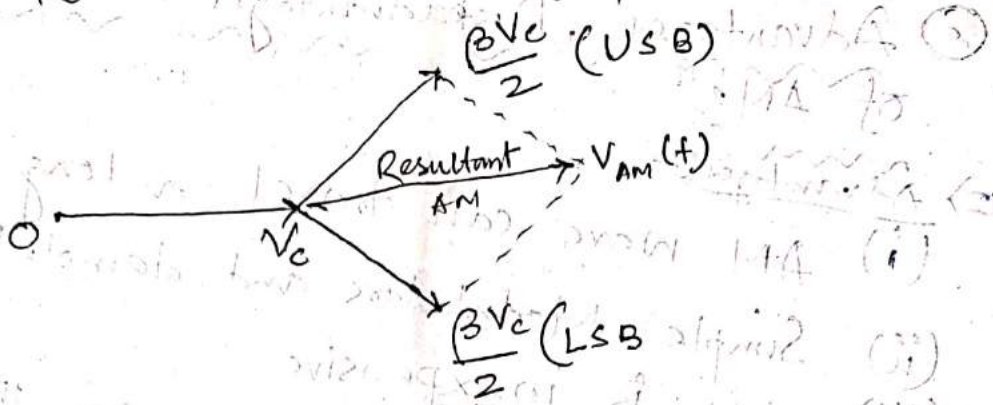 βVc/2 (USB)
Resultant
AM
V_AM(t)
O
Vc
βVc/2 (LSB